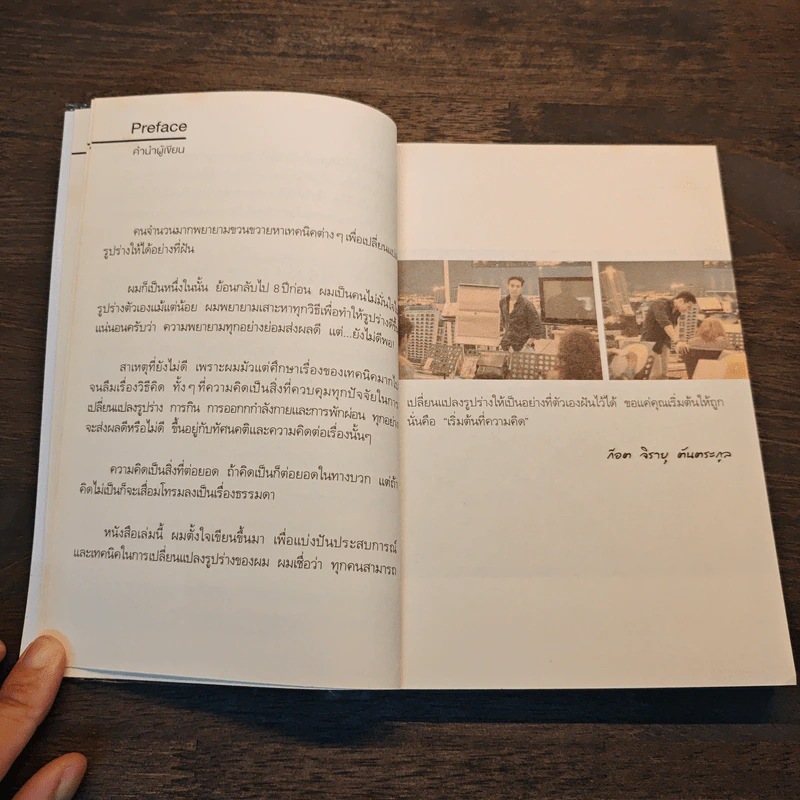 Preface
คำนำผู้เขียน
คนจำนวนมากพยายามขวนขวายหาเทคนิคต่างๆ เพื่อเปลี่ยนแปลง
รูปร่างให้ได้อย่างที่ฝัน
ผมก็เป็นหนึ่งในนั้น ย้อนกลับไป 8 ปีก่อน ผมเป็นคนไม่มั่นใจใน
รูปร่างตัวเองแม้แต่น้อย ผมพยายามเสาะหาทุกวิธีเพื่อทำให้รูปร่างดีขึ้น
แน่นอนครับว่า ความพยายามทุกอย่างย่อมส่งผลดี แต่...ยังไม่ดีพอ!
สาเหตุที่ยังไม่ดี เพราะผมมัวแต่ศึกษาเรื่องของเทคนิคมากไป
จนลืมเรื่องวิธีคิด ทั้งๆ ที่ความคิดเป็นสิ่งที่ควบคุมทุกปัจจัยในการ
เปลี่ยนแปลงรูปร่าง การกิน การออกกำลังกายและการพักผ่อน ทุกอย่าง
จะส่งผลดีหรือไม่ดี ขึ้นอยู่กับทัศนคติและความคิดต่อเรื่องนั้นๆ
ความคิดเป็นสิ่งที่ต่อยอด ถ้าคิดเป็นก็ต่อยอดในทางบวก แต่ถ้า
คิดไม่เป็นก็จะเสื่อมโทรมลงเป็นเรื่องธรรมดา
หนังสือเล่มนี้ ผมตั้งใจเขียนขึ้นมา เพื่อแบ่งปันประสบการณ์
และเทคนิคในการเปลี่ยนแปลงรูปร่างของผม ผมเชื่อว่า ทุกคนสามารถ
เปลี่ยนแปลงรูปร่างให้เป็นอย่างที่ตัวเองฝันไว้ได้ ขอแค่คุณเริ่มต้นให้ถูก
นั่นคือ "เริ่มต้นที่ความคิด"
ก๊อต จิรายุ ตันตระกูล